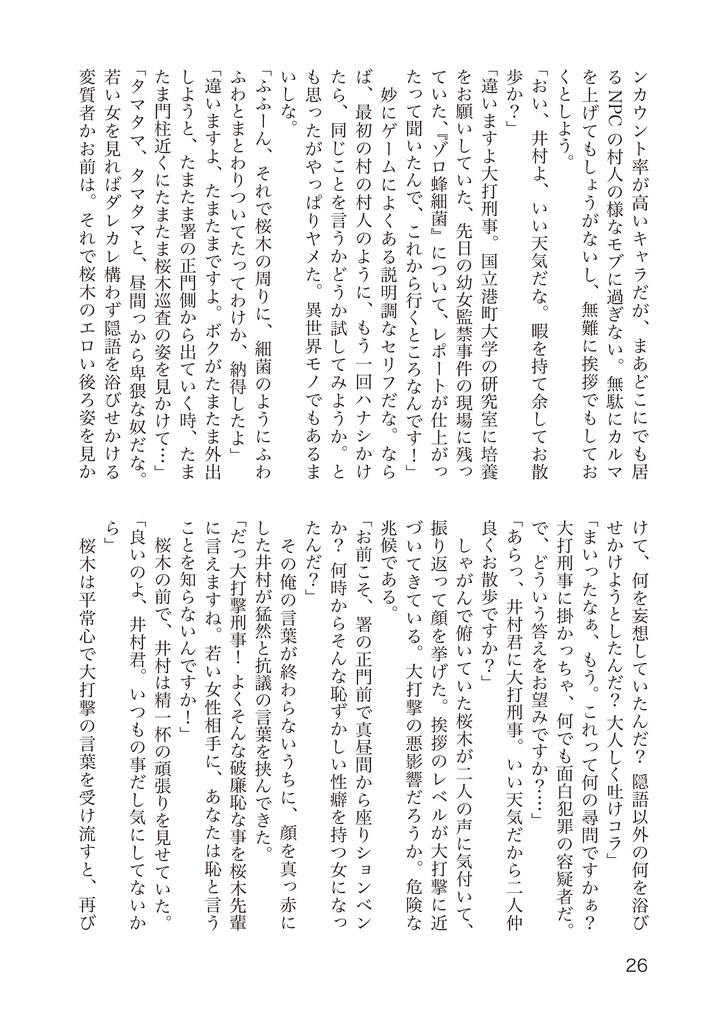 ンカウント率が高いキャラだが、まあどこにでも居
るNPCの村人の様なモブに過ぎない。無駄にカルマ
を上げてもしょうがないし、無難に挨拶でもしてお
くとしよう。
「おい、井村よ、いい天気だな。暇を持て余してお散
歩か？」
「違いますよ大打刑事。国立港町大学の研究室に培養
をお願いしていた、先日の幼女監禁事件の現場に残っ
ていた、『ゾロ蜂細菌』について、レポートが仕上がっ
たって聞いたんで、これから行くところなんです！」
　妙にゲームによくある説明調なセリフだな。なら
ば、最初の村の村人のように、もう一回ハナシかけ
たら、同じことを言うかどうか試してみようか。と
も思ったがやっぱりヤメた。異世界モノでもあるま
いしな。
「ふふーん、それで桜木の周りに、細菌のようにふわ
ふわとまとわりついてたってわけか、納得したよ」
「違いますよ、たまたまですよ。ボクがたまたま外出
しようと、たまたま署の正門側から出ていく時、たま
たま門柱近くにたまたま桜木巡査の姿を見かけて…」
「タマタマ、タマタマと、昼間っから卑猥な奴だな。
若い女を見ればダレカレ構わず隠語を浴びせかける
変質者かお前は。それで桜木のエロい後ろ姿を見か
けて、何を妄想していたんだ？　隠語以外の何を浴び
せかけようとしたんだ？大人しく吐けコラ」
「まいったなぁ、もう。これって何の尋問ですかぁ？
大打刑事に掛かっちゃ、何でも面白犯罪の容疑者だ。
で、どういう答えをお望みですか？…」
「あらっ、井村君に大打刑事。いい天気だから二人仲
良くお散歩ですか？」
　しゃがんで俯いていた桜木が二人の声に気付いて、
振り返って顔を挙げた。挨拶のレベルが大打撃に近
づいてきている。大打撃の悪影響だろうか。危険な
兆候である。
「お前こそ、署の正門前で真昼間から座りションベン
か？　何時からそんな恥ずかしい性癖を持つ女になっ
たんだ？」
　その俺の言葉が終わらないうちに、顔を真っ赤に
した井村が猛然と抗議の言葉を挟んできた。
「だっ大打撃刑事！よくそんな破廉恥な事を桜木先輩
に言えますね。若い女性相手に、あなたは恥と言う
ことを知らないんですか！」
　桜木の前で、井村は精一杯の頑張りを見せていた。
「良いのよ、井村君。いつもの事だし気にしてないか
ら」
　桜木は平常心で大打撃の言葉を受け流すと、再び
26